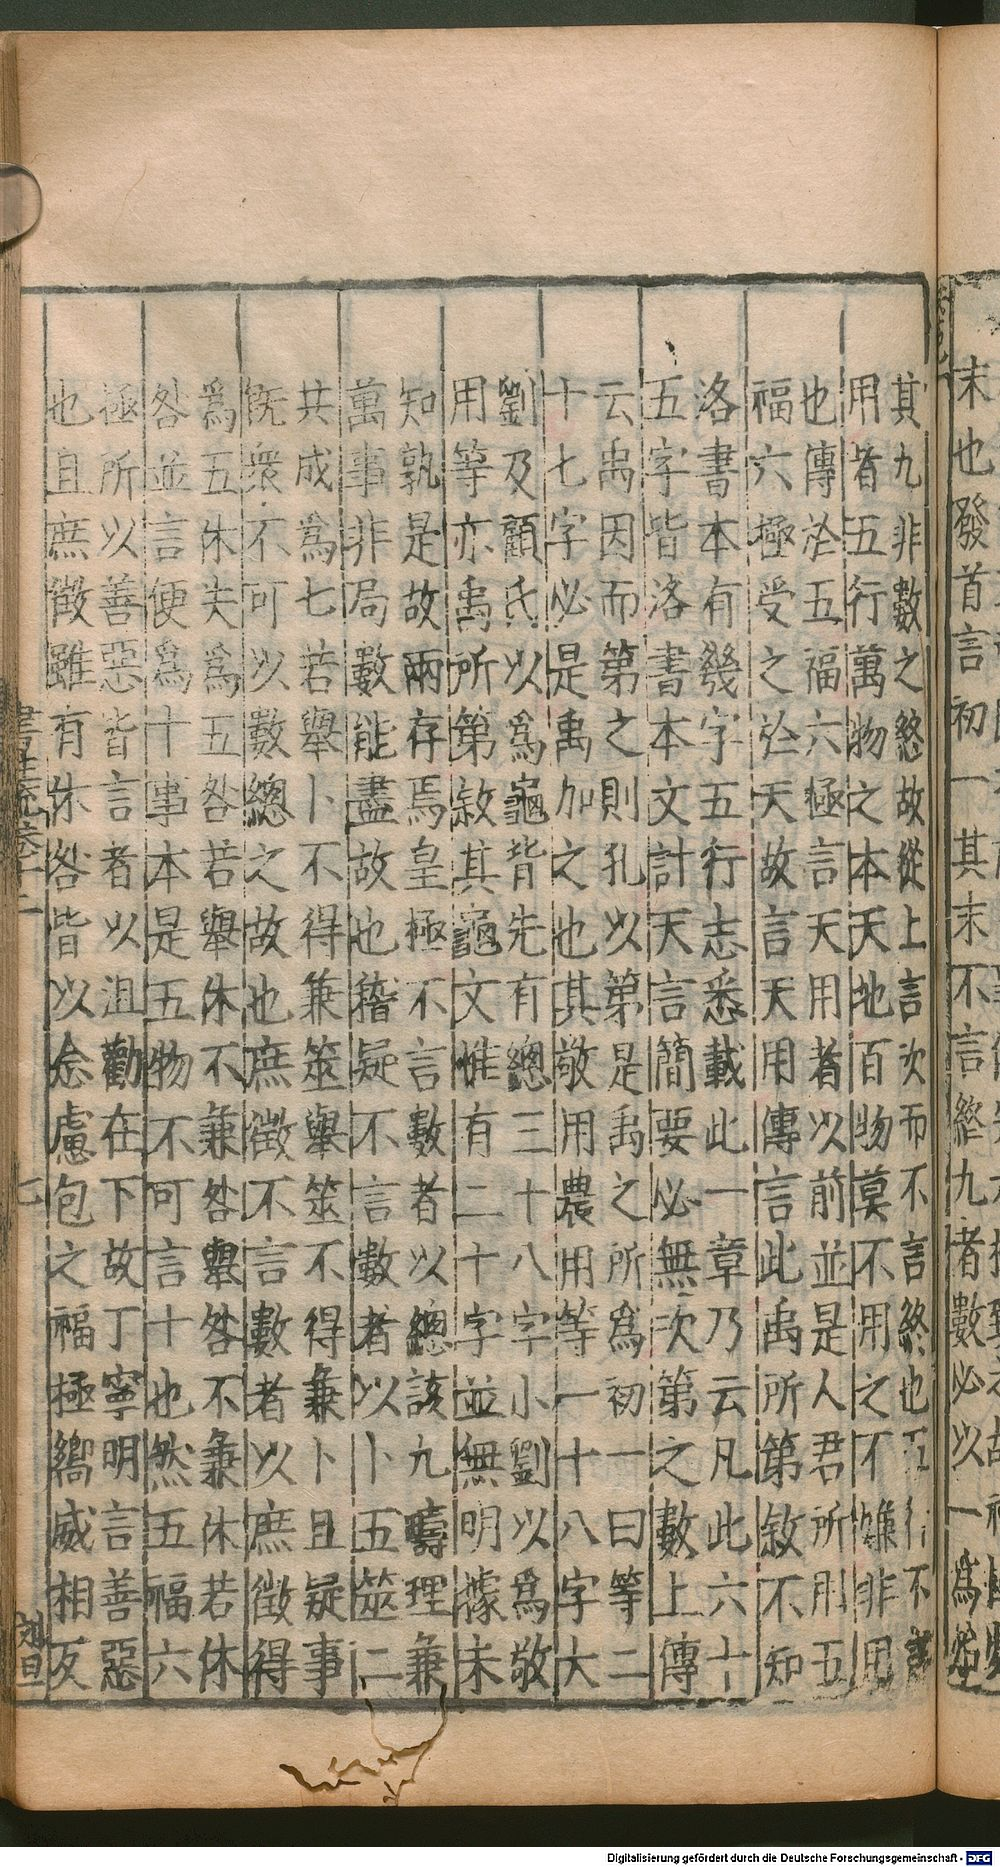 末也發首言初一其末不言終九者數必以一爲始
其九非數之終故從上言次而不言終也五行不言
用者五行萬物之本天地百物莫不用之不嫌非用
也傳於五福六極言天用者以前並是人君所用五
福六極受之於天故言天用傳言此禹所第敘不知
洛書本有幾字五行志悉載此一章乃云凡此六十
五字皆洛書本文計天言簡要必無次第之數上傳
云禹因而第之則孔以第是禹之所爲初一曰等二
十七字必是禹加之也其敬用農用等一十八字大
劉及顧氏以爲龜背先有總三十八字小劉以爲敬
用等亦禹所第敘其龜文惟有二十字並無明據未
知孰是故兩存焉皇極不言數者以總該九疇理兼
萬事非局數能盡故也稽疑不言數者以卜五筮二
共成爲七若舉卜不得兼筮舉筮不得兼卜且疑事
旣衆不可以數總之故也庶徵不言數者以庶徵得
爲五休失爲五咎若舉休不兼咎舉咎不兼休若休
咎並言便爲十事本是五物不可言十也然五福六
極所以善惡皆言者以沮勸在下故丁寧明言善惡
也且庶徵雖有休咎皆以念慮包之福極嚮威相反
Digitalisierung gefördert durch die Deutsche Forschungsgemeinschaft - DFG